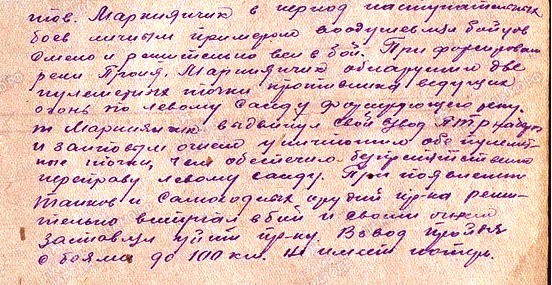 тов. Марниянчик в период наступательных
боев личным примером воодушевлял бойцов
смело и решительно вел в бой. При форсировании
реки Проня, Марниянчик обнаружил две
пулеметных точки противника ведущих
огонь по левому санду форсирующего реку,
т. Марниянчик выдвинул свой взвод ПТР
и залповым огнем уничтожил обе пулемет-
ные точки, чем обеспечил беспрепятственно
переправу левому санду. При появлении
танков и самоходных орудий пр-ка реши-
тельно вступал в бой и своим огнем
заставлял уйти пр-ку. Взвод пройдя
с боями до 100 км. Не имеет потерь.